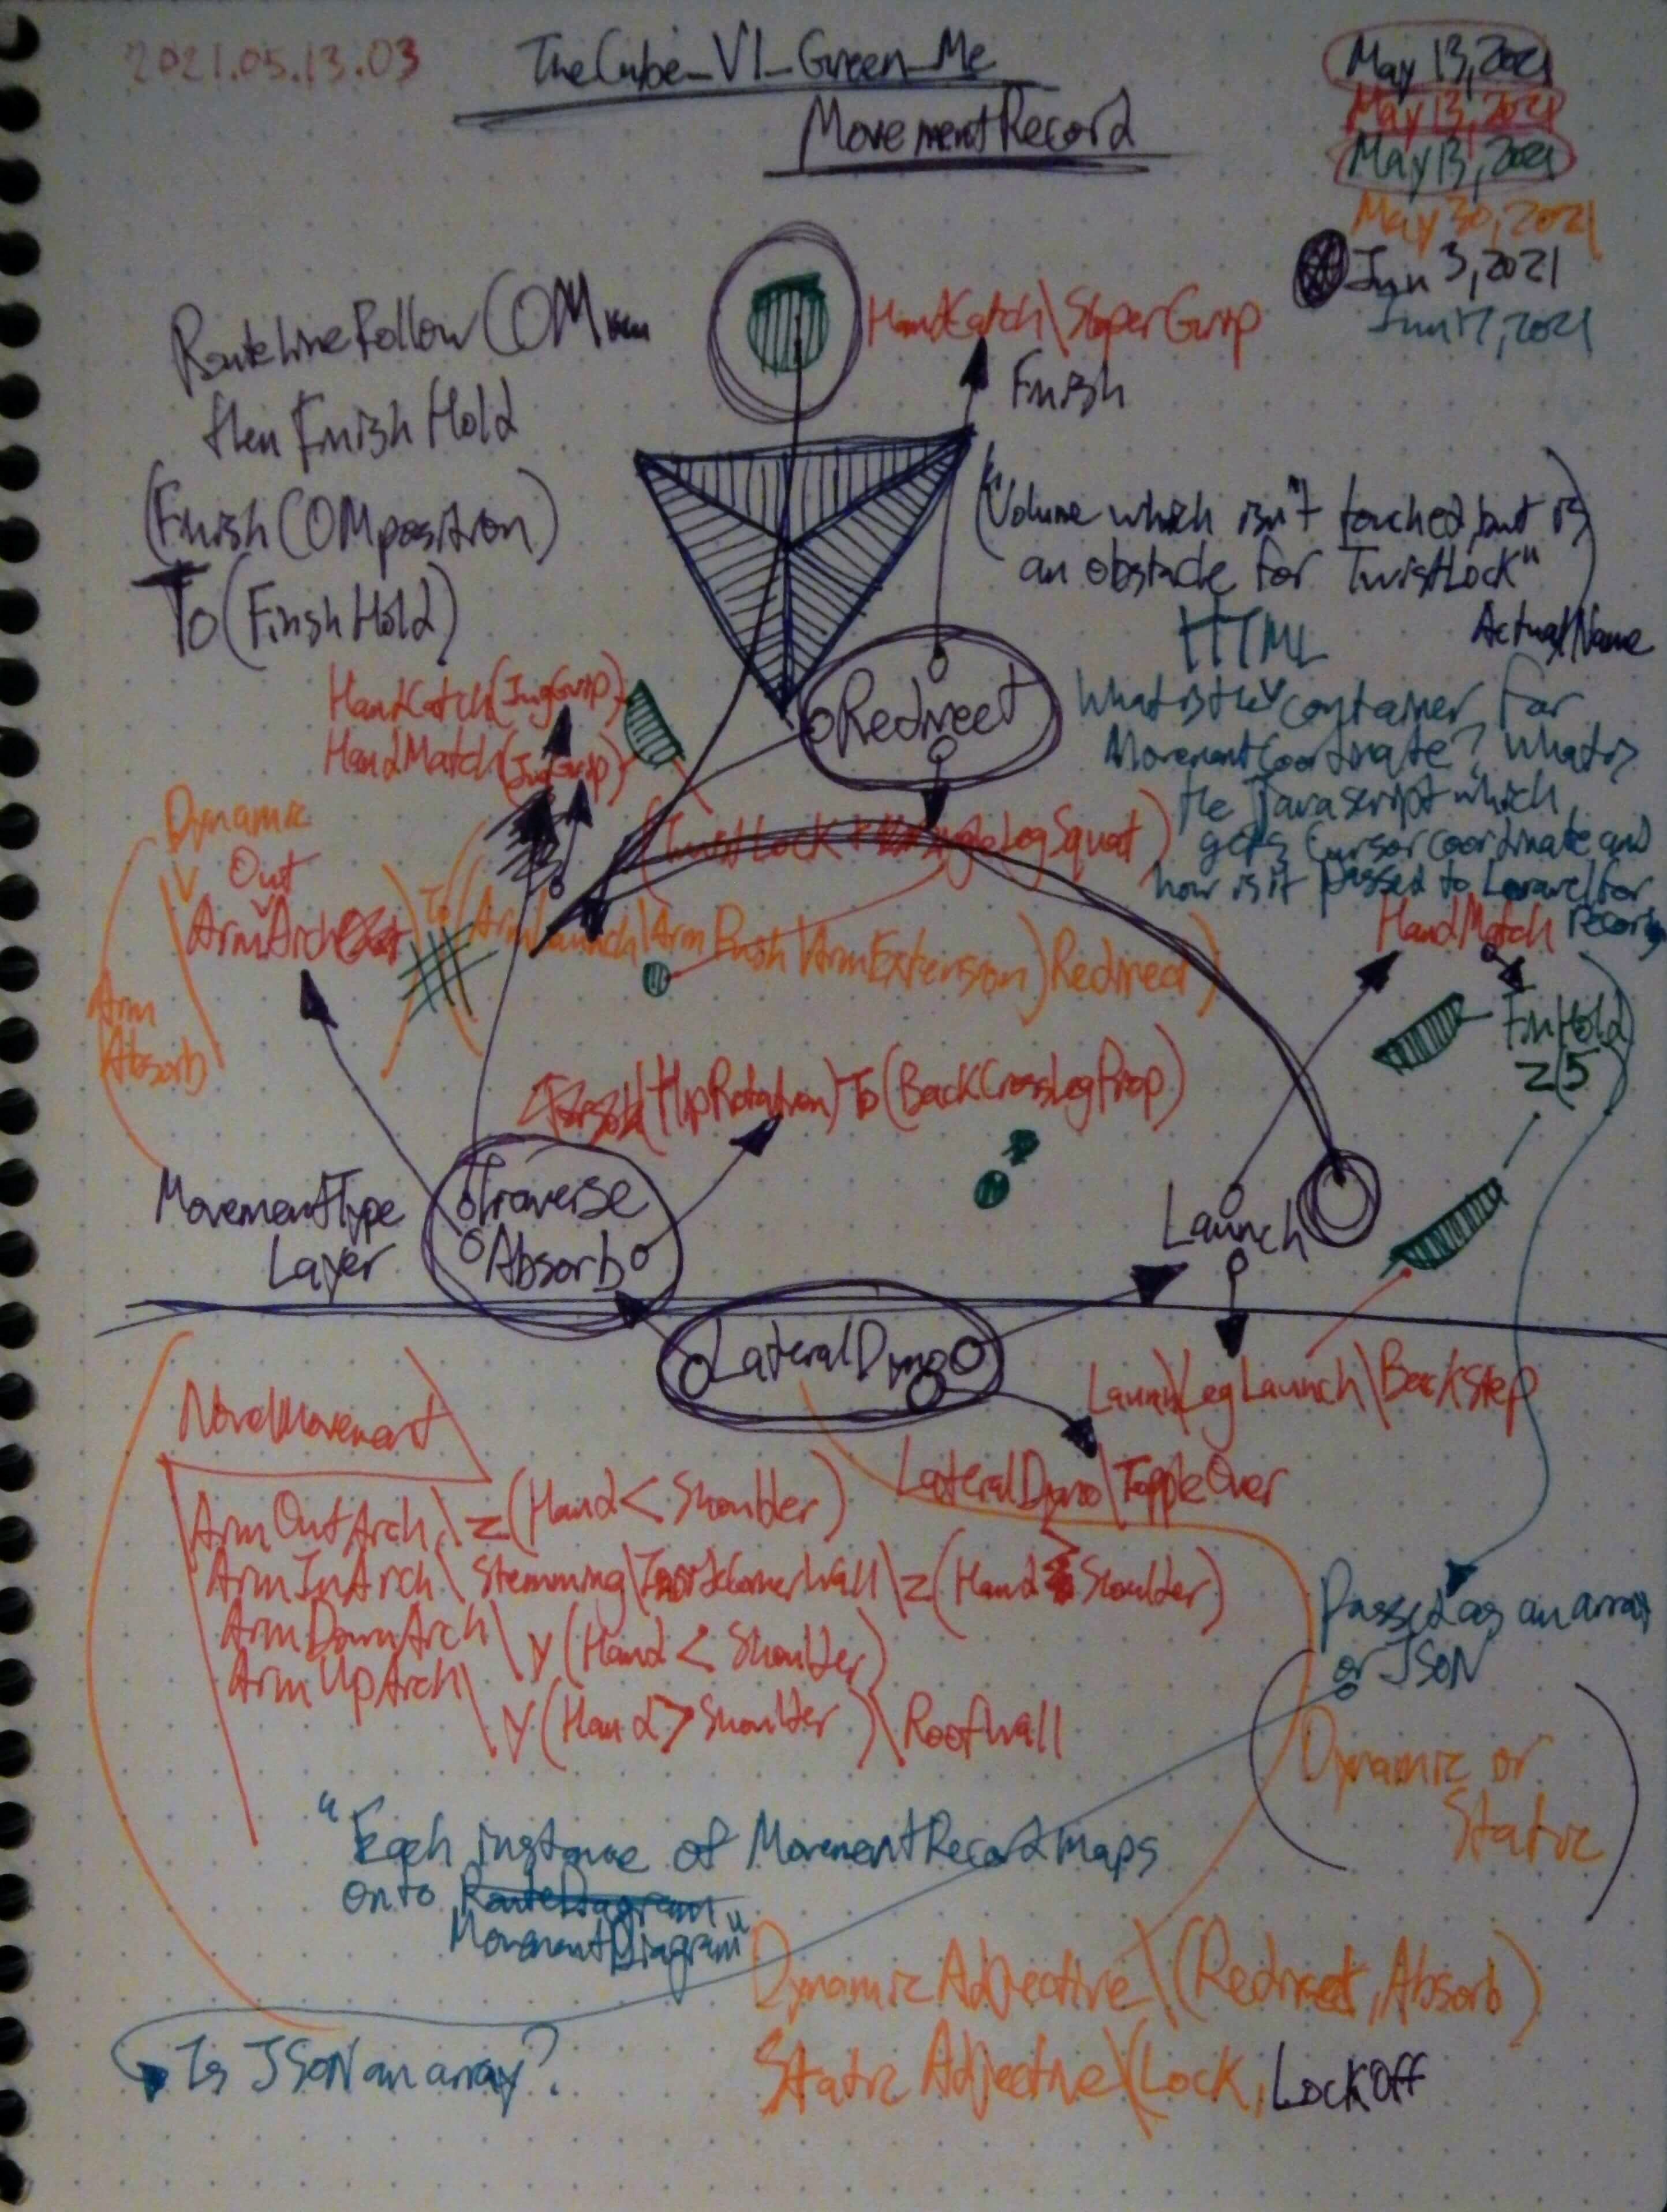 2021.05.13.03
TheCube_V1_Green_Me
MovementRecord
May 13, 2021
May 13, 2021
May 13, 2021
May 30, 2021
Jun 3, 2021
Jun 17, 2021
RouteLineFollow COM
then Finish Hold
(Finish COM position)
To (Finish Hold)
HandCatch\SloperGrip
Finish
("Volume which isn't touched, but is
an obstacle for TwistLock")
ActualName
HTML
What is the container for
MovementCoordinate? What is
the Javascript which
gets cursor coordinate and
how is it passed to Laravel for
record
HandCatch(JugGrip)
HandMatch(JugGrip)
Redirect
Dynamic
Out
ArmArch
(TwistLock + LegSquat)
To ((ArmLaunch\ArmPush\ArmExtension) Redirect)
Arm
Absorb
HandMatch
FinHold
z(5)
(HipRotation) To (BackCrossLegProp)
MovementType
Layer
Traverse
Absorb
Launch
LateralDyno
Launch\LegLaunch\BackStep
LateralDyno\ToppleOver
NovelMovement
ArmOutArch\z(Hand < Shoulder)
ArmInArch\Stemming\ \z(Hand Shoulder)
ArmDownArch\y(Hand < Shoulder)
ArmUpArch\y(Hand > Shoulder)\RoofWall
Passed as an array
or JSON
(Dynamic or
Static)
"Each instance of MovementRecord maps
onto RouteDiagram
MovementDiagram"
DynamicAdjective\(Redirect, Absorb)
StaticAdjective\(Lock, LockOff
Is JSON an array?